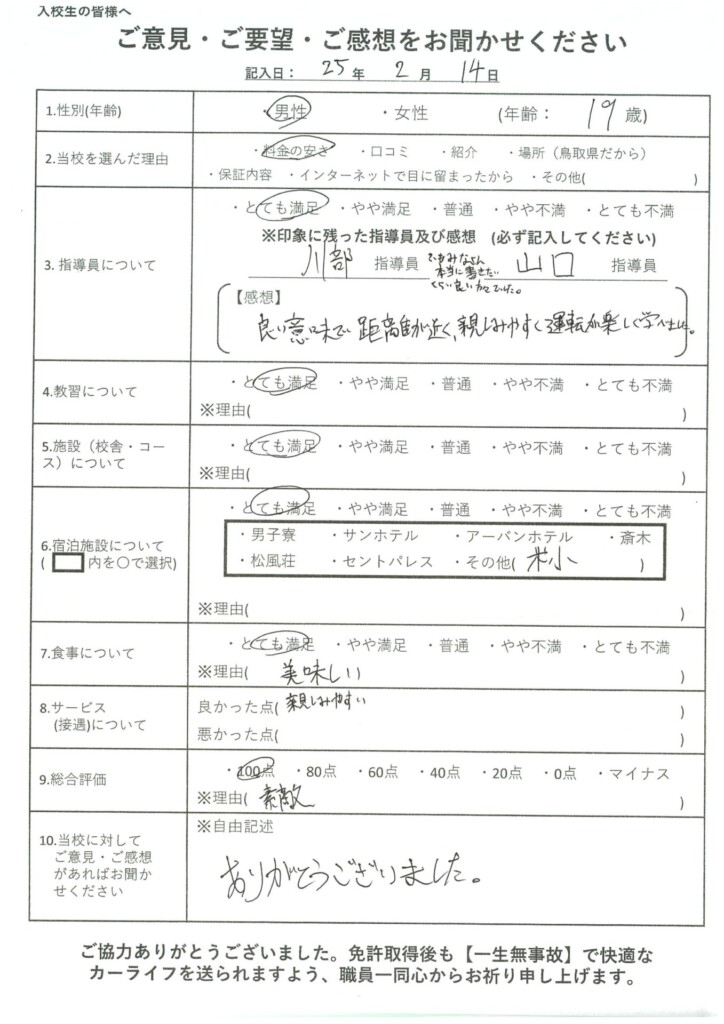 入校生の皆様へ
ご意見・ご要望・ご感想をお聞かせください
記入日： 25年 2月 14日
1.性別(年齢) ・男性 ・女性 (年齢： 19歳)
2.当校を選んだ理由 ・料金の安さ ・口コミ ・紹介 ・場所（鳥取県だから）
・保証内容 ・インターネットで目に留まったから ・その他( )
3. 指導員について ・とても満足 ・やや満足 ・普通 ・やや不満 ・とても不満
※印象に残った指導員及び感想 (必ず記入してください)
川部 指導員 山口 指導員
でもみなさん
本当に書きたい
くらい良い方でした。
【感想】
良い意味で距離感が近く、親しみやすく運転が楽しく学べました。
4.教習について ・とても満足 ・やや満足 ・普通 ・やや不満 ・とても不満
※理由( )
5.施設（校舎・コース）について ・とても満足 ・やや満足 ・普通 ・やや不満 ・とても不満
※理由( )
6.宿泊施設について ・とても満足 ・やや満足 ・普通 ・やや不満 ・とても不満
( 内を〇で選択)
・男子寮 ・サンホテル ・アーバンホテル ・斎木
・松風荘 ・セントパレス ・その他( 米小 )
※理由( )
7.食事について ・とても満足 ・やや満足 ・普通 ・やや不満 ・とても不満
※理由( 美味しい )
8.サービス 良かった点( 親しみやすい )
(接遇)について 悪かった点( )
9.総合評価 ・100点 ・80点 ・60点 ・40点 ・20点 ・0点 ・マイナス
※理由( 素敵 )
10.当校に対して
ご意見・ご感想
があればお聞か
せください
※自由記述
ありがとうございました。
ご協力ありがとうございました。免許取得後も【一生無事故】で快適な
カーライフを送られますよう、職員一同心からお祈り申し上げます。